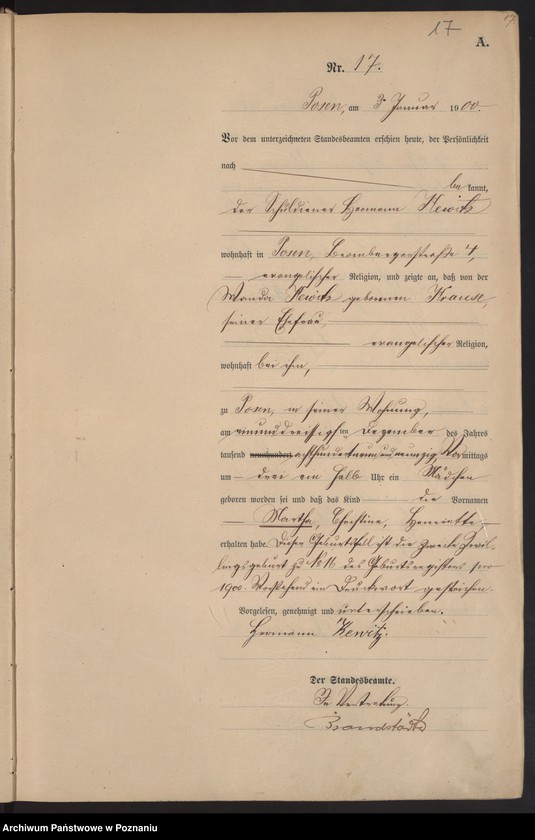 17
17
A.
Nr. 17.
Posen, am 3 Januar 1900.
Vor dem unterzeichneten Standesbeamten erschien heute, der Persönlichkeit
nach
bekannt,
der Schuldiener Hermann Kewitz
wohnhaft in Posen, Brombergerstraße 4,
evangelischer Religion, und zeigte an, daß von der
Wanda Kewitz geborenen Krause,
seiner Ehefrau,
evangelischer Religion,
wohnhaft bei ihm,
zu Posen, in seiner Wohnung,
am einunddreissigsten Dezember des Jahres
tausend neunhundert achthundertneunundneunzig Vormittags
um drei ein halb Uhr ein Mädchen
geboren worden sei und daß das Kind die Vornamen
Martha, Christine, Henriette
erhalten habe. Dieser Geburtsfall ist die zweite Zwil-
lingsgeburt zu No 16 des Geburtsregisters pro
1900. Vorstehend ein Druckwort gestrichen.
Vorgelesen, genehmigt und unterschrieben.
Hermann Kewitz.
Der Standesbeamte.
In Vertretung.
Brandstädter
Archiwum Państwowe w Poznaniu